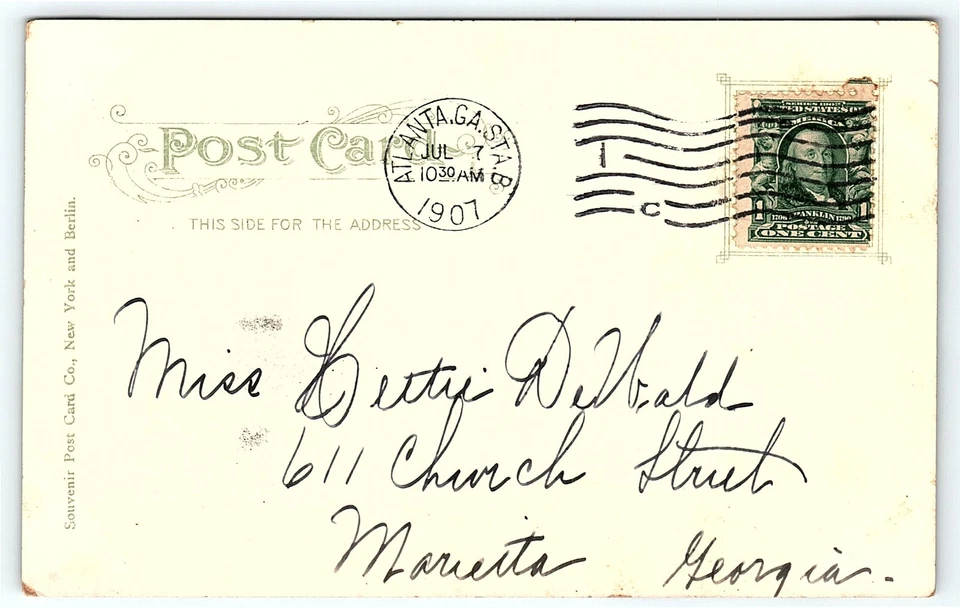 Post Card
THIS SIDE FOR THE ADDRESS
ATLANTA, GA. STA. B
JUL 7
10 30 AM
1907
1
C
SERIES 1902
UNITED STATES OF
AMERICA
1 1
1706 FRANKLIN 1790
POSTAGE
ONE CENT
Souvenir Post Card Co., New York and Berlin.
Miss Hettie DeWald
611 Church Street
Marietta Georgia.